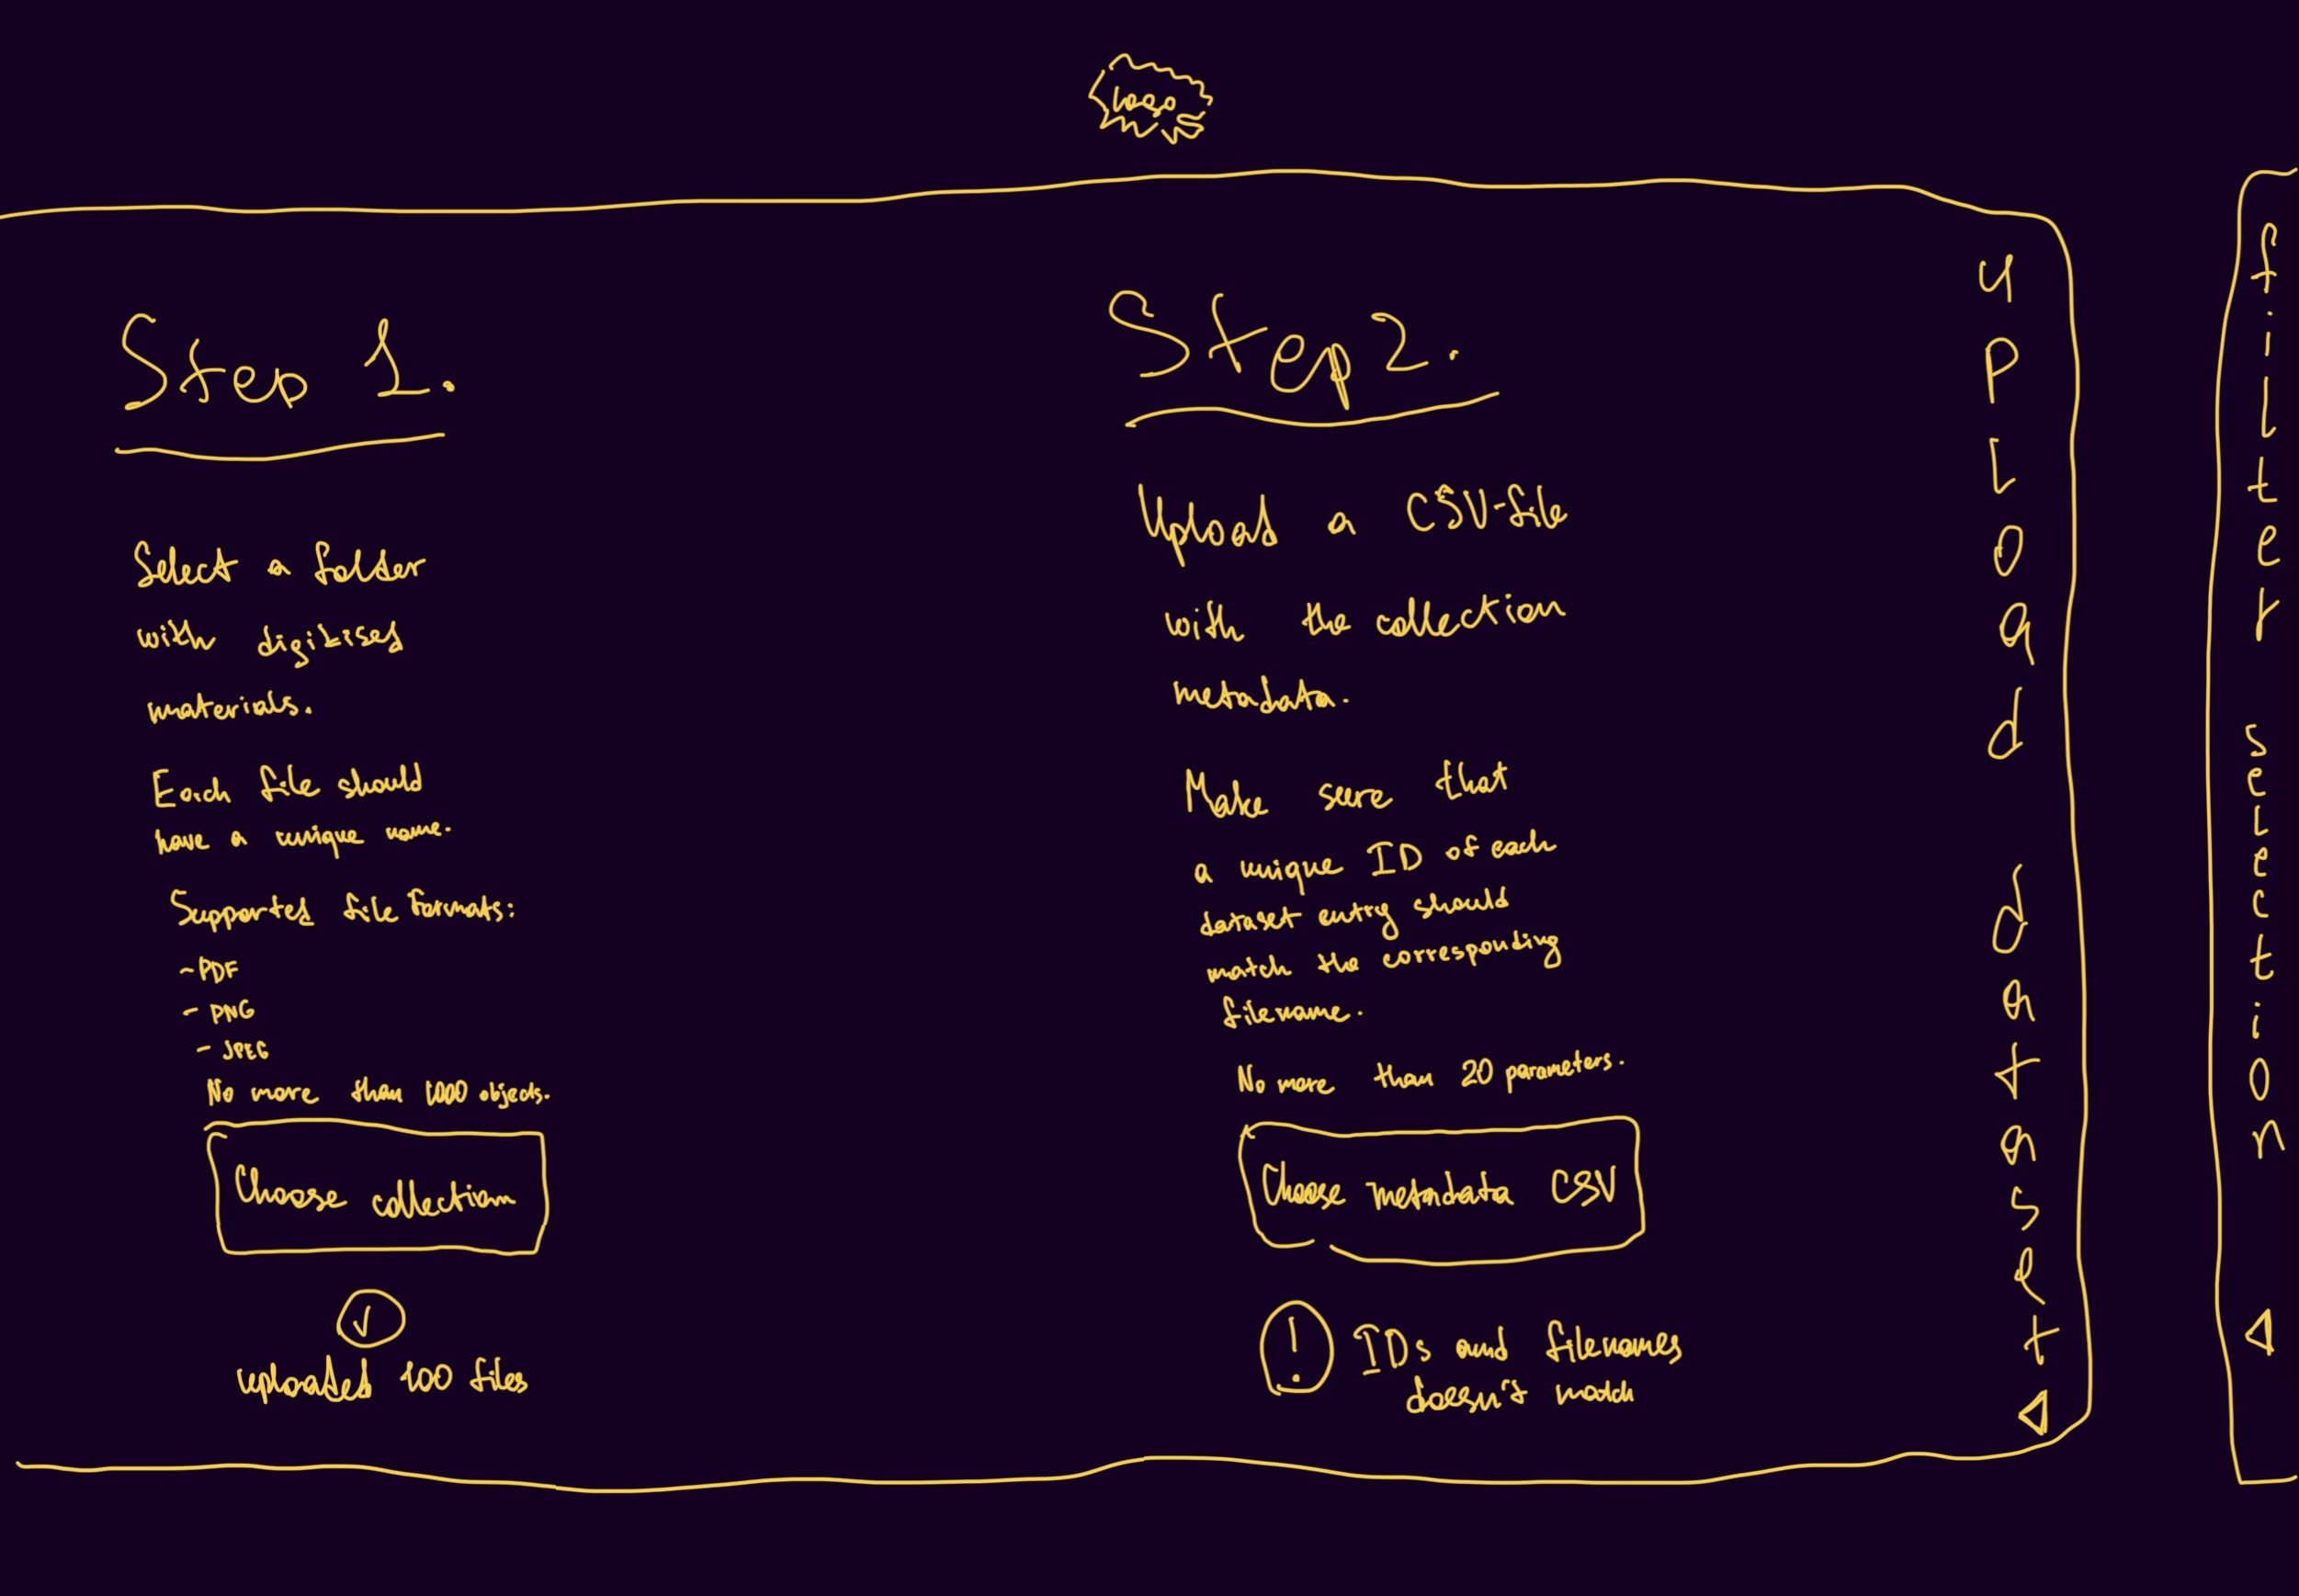 logo
Step 1.
Select a folder
with digitised
materials.
Each file should
have a unique name.
Supported file formats:
- PDF
- PNG
- JPEG
No more than 1000 objects.
Choose collection
✓
uploaded 100 files
Step 2.
Upload a CSV-file
with the collection
metadata.
Make sure that
a unique ID of each
dataset entry should
match the corresponding
filename.
No more than 20 parameters.
Choose metadata CSV
! IDs and filenames
doesn't match
upload dataset
filter selection